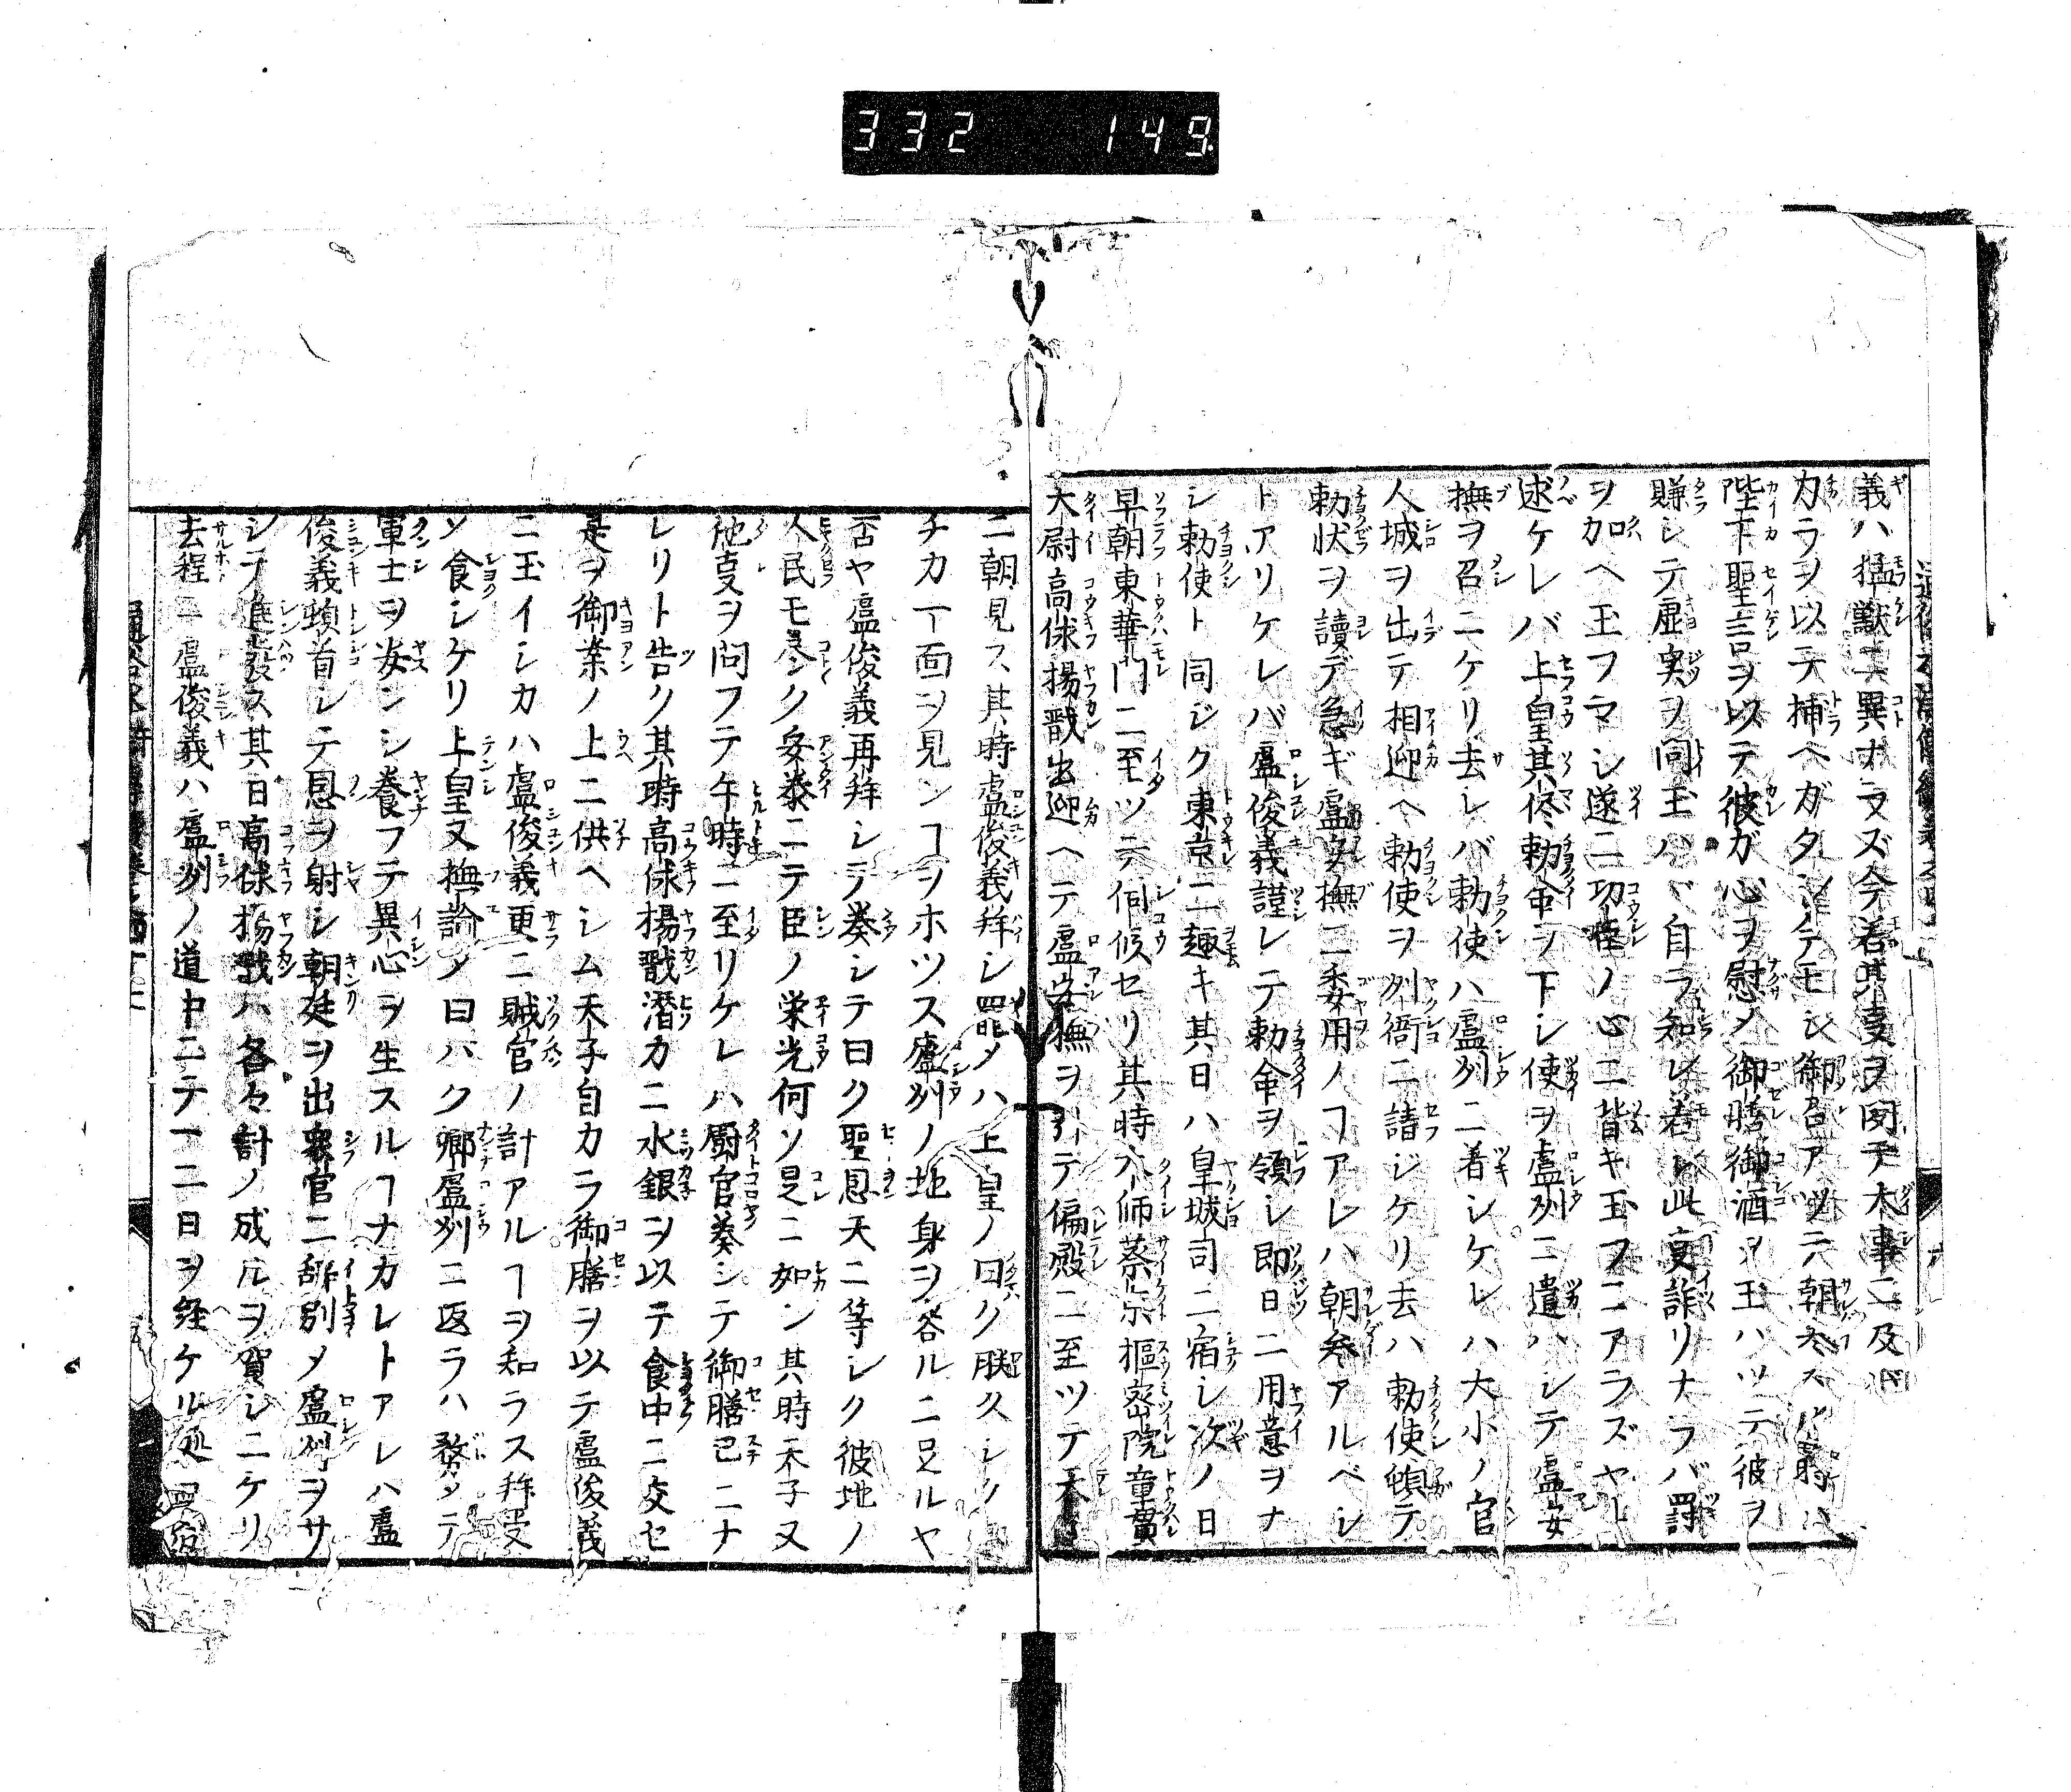 332 149
義ハ猛獣ニ異ナラズ今若其叓ヲ聞テ大事ニ及
カラヲ以テ捕ヘガタシ御召アツニ朝参スル
陛下聖言ヲ以テ彼ガ心ヲ慰メ御膳御酒ヲ玉ハツテ彼ヲ
賺シテ虚実ヲ問玉ハヾ自ラ知レ若シ此叓詐リナラバ罸
ヲ加ヘ玉フマシ遂ニ功臣ノ心ニ背キ玉フニアラズヤト
述ケレバ上皇其侭勅命ヲ下シ使ヲ盧州ニ遣ハシテ盧安
撫ヲ召ニケリ去レバ勅使ハ盧州ニ着シケレハ大小ノ官
人城ヲ出テ相迎ヘ勅使ヲ州衙ニ請ジケリ去ハ勅使頓テ
勅状ヲ讀デ急ギ盧安撫ニ委用ノヿアレハ朝参アルベシ
トアリケレバ盧俊義謹シテ勅命ヲ領シ即日ニ用意ヲナ
シ勅使ト同ジク東京ニ趣キ其日ハ皇城司ニ宿シ次ノ日
早朝東華門ニ至ツテ伺候セリ其時太師蔡京樞密院童貫
大尉高俅楊戩出迎ヘテ盧安撫ヲ引テ偏殿ニ至ツテ天子
ニ朝見ス其時盧俊義拜シ罷メハ上皇ノ曰ク朕久シク
チカ一面ヲ見ンヿヲホツス盧州ノ地身ヲ容ルニ足ルヤ
否ヤ盧俊義再拜シテ奏シテ曰ク聖恩天ニ等シク彼地ノ
人民モ尽ク安泰ニテ臣ノ栄光何ソ是ニ如ン其時天子又
他叓ヲ問フテ午時ニ至リケレハ厨官奏シテ御膳已ニナ
レリト告ク其時高俅楊戩潜カニ水銀ヲ以テ食中ニ交セ
是ヲ御案ノ上ニ供ヘシム天子自カラ御膳ヲ以テ盧俊義
ニ玉イシカハ盧俊義更ニ賊官ノ計アルヿヲ知ラス拜受
ソ食シケリ上皇又撫諭メ曰ハク卿盧州ニ返ラハ務メテ
軍士ヲ安ンシ養フテ異心ヲ生スルヿナカレトアレハ盧
俊義頓首シテ恩ヲ射シ朝廷ヲ出衆官ニ辞別メ盧州ヲサ
シテ進發ス其日高俅楊戩ハ各々計ノ成ルヲ賀シニケリ
去程ニ盧俊義ハ盧州ノ道中ニテ一二日ヲ経ケル処